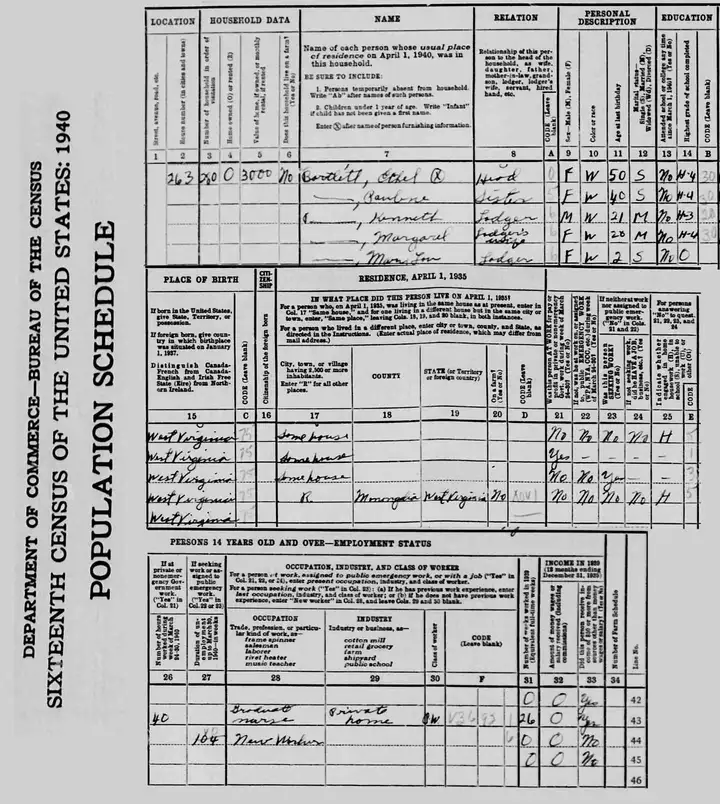 DEPARTMENT OF COMMERCE—BUREAU OF THE CENSUS
SIXTEENTH CENSUS OF THE UNITED STATES: 1940
POPULATION SCHEDULE
LOCATION HOUSEHOLD DATA NAME RELATION PERSONAL DESCRIPTION EDUCATION
Street, avenue, road, etc.
House number (in cities and towns)
Number of household in order of visitation
Home owned (O) or rented (R)
Value of home, if owned, or monthly rental, if rented
Does this household live on a farm? (Yes or No)
Name of each person whose usual place of residence on April 1, 1940, was in this household.
BE SURE TO INCLUDE:
1. Persons temporarily absent from household. Write "Ab" after names of such persons.
2. Children under 1 year of age. Write "Infant" if child has not been given a first name.
Enter ⓧ after name of person furnishing information.
Relationship of this person to the head of the household, as wife, daughter, father, mother-in-law, grandson, lodger, lodger's wife, servant, hired hand, etc.
CODE (Leave blank)
Sex—Male (M), Female (F)
Color or race
Age at last birthday
Marital status—Single (S), Married (M), Widowed (Wd), Divorced (D)
Attended school or college any time since March 1, 1940? (Yes or No)
Highest grade of school completed
CODE (Leave blank)
1 2 3 4 5 6 7 8 A 9 10 11 12 13 14 B
263 280 O 3000 No Bartlett, Ethel ⓧ Head 0 F W 50 S No H-4 30
——, Pauline Sister 5 F W 40 S No H-4 30
——, Kenneth Lodger 6 M W 21 M No H-3
——, Margaret Lodger's wife 6 F W 20 M No H-4 30
——, Mary Lou Lodger 6 F W 2 S No O
PLACE OF BIRTH CITIZENSHIP RESIDENCE, APRIL 1, 1935
If born in the United States, give State, Territory, or possession.
If foreign born, give country in which birthplace was situated on January 1, 1937.
Distinguish Canada-French from Canada-English and Irish Free State (Eire) from Northern Ireland.
CODE (Leave blank)
Citizenship of the foreign born
IN WHAT PLACE DID THIS PERSON LIVE ON APRIL 1, 1935?
For a person who, on April 1, 1935, was living in the same house as at present, enter in Col. 17 "Same house," and for one living in a different house but in the same city or town, enter, "Same place," leaving Cols. 18, 19, and 20 blank, in both instances.
For a person who lived in a different place, enter city or town, county, and State, as directed in the Instructions. (Enter actual place of residence, which may differ from mail address.)
City, town, or village having 2,500 or more inhabitants. Enter "R" for all other places.
COUNTY
STATE (or Territory or foreign country)
On a farm? (Yes or No)
CODE (Leave blank)
For persons answering "No" to quest. 21, 22, 23, and 24
15 C 16 17 18 19 20 D 21 22 23 24 25 E
West Virginia 75 Same house No No No No H 5
West Virginia 75 Same house Yes – – – 1
West Virginia 75 Same house No No Yes – 3
West Virginia 75 R. Monongalia West Virginia No No No No No H 5
West Virginia
PERSONS 14 YEARS OLD AND OVER—EMPLOYMENT STATUS
If at private or nonemergency Government work. ("Yes" in Col. 21)
If seeking work or assigned to public emergency work. ("Yes" in Col. 22 or 23)
Number of hours worked during week of March 24-30, 1940
OCCUPATION, INDUSTRY, AND CLASS OF WORKER
For a person at work, assigned to public emergency work, or with a job ("Yes" in Col. 21, 22, or 24), enter present occupation, industry, and class of worker.
For a person seeking work ("Yes" in Col. 23): (a) If he has previous work experience, enter last occupation, industry, and class of worker; or (b) if he does not have previous work experience, enter "New worker" in Col. 28, and leave Cols. 29 and 30 blank.
OCCUPATION
Trade, profession, or particular kind of work, as—
frame spinner
salesman
laborer
rivet heater
music teacher
INDUSTRY
Industry or business, as—
cotton mill
retail grocery
farm
shipyard
public school
Class of worker
CODE (Leave blank)
Number of weeks worked in 1939 (Equivalent full-time weeks)
INCOME IN 1939 (12 months ending December 31, 1939)
Amount of money wages or salary received (including commissions)
Number of Farm Schedule
Line No.
26 27 28 29 30 F 31 32 33 34
0 0 Yes 42
40 Graduate nurse Private home OW V36 92 1 26 0 Yes 43
104 New Worker 6 0 0 No 44
0 0 No 45
46